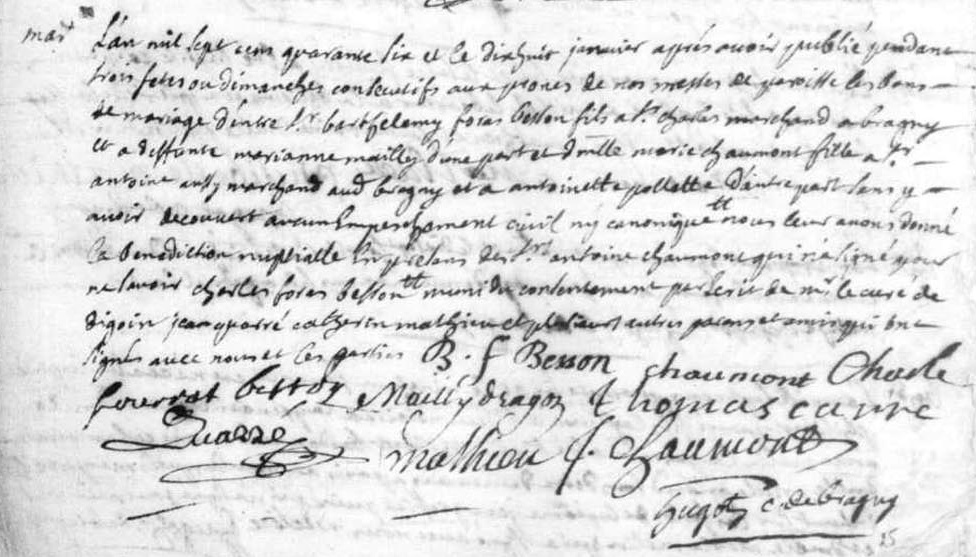 mar
L'an mil sept cens quarante six et le dixhuit janvier après avoir publié pendant
trois fetes ou dimanches consecutifs aux prones de nos messes de paroisse les bans
de mariage d'entre Sr barthelemy foras besson fils a Sr charles marchand a bragny
et a deffunte marianne mailley d'une part et dmlle marie chaumont fille a Sr
antoine aussy marchand aud bragny et a antoinette pollette d'autre part sans y
avoir decouvert aucun Empeschement civil ny canonique tt nous leur avons donné
la benediction nuptialle En presans des Srs antoine chaumont qui n'a signé pour
ne savoir charles foras besson tt muni du consentement par Ecrit de mr le curé de
digoin jean quarré catherin mathieu et plusieurs autres parens et amis qui ont
signés avec nous et les parties B. f Besson chaumont Charle
fourrat besson Mailly dragon thomas carre
Quarre mathieu J. Chaumont
hugot c. de bragny